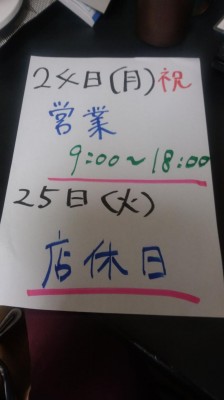 24日(月)祝
営業
9:00~18:00
25日(火)
店休日